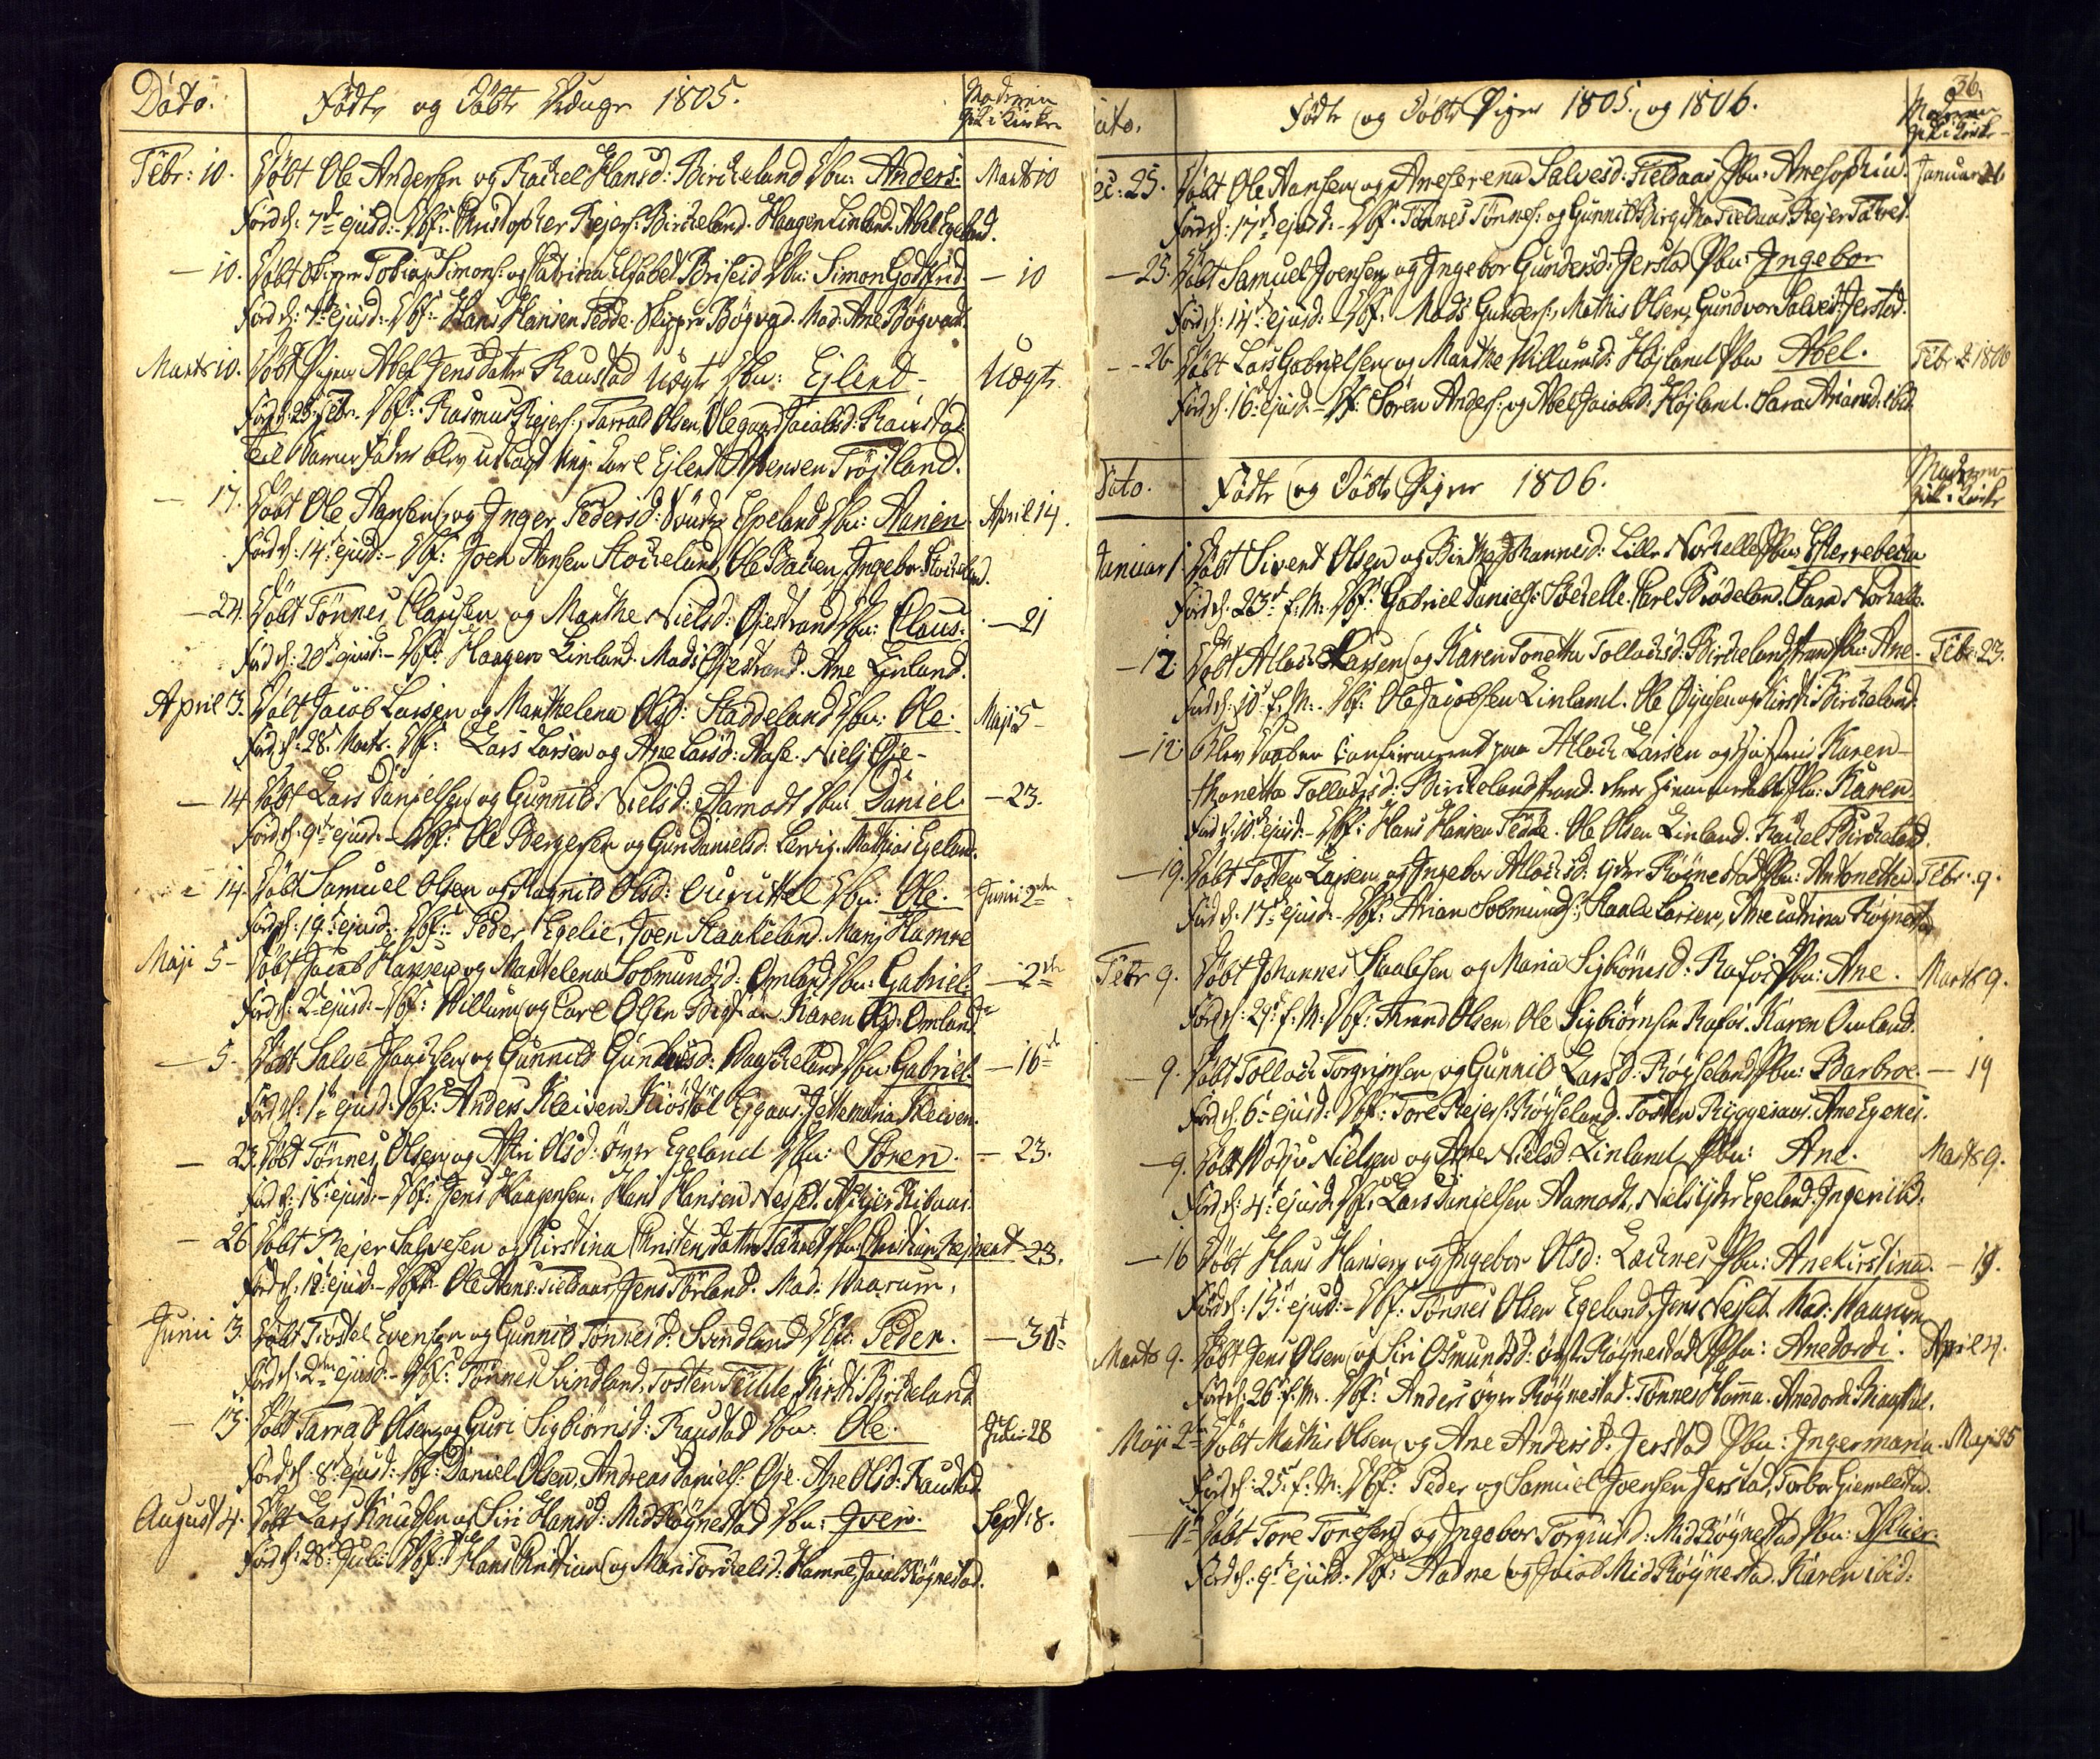 Dato.
Födte og Döbte Drenge 1805.
Moderen
gik i Kirke
Febr: 10. Döbt Ole Andersen og Rachel Hansd: Birckeland Dbn: Anders. Marts 10
Föd d: 7de ejusd: Vbf: Christopher Rejers: Birckeland. Haagen Linland. Abel Egeland.
— 10. Döbt Skipper Tobias Simons: og Catrina Elisabet Briseid Dbn: Simon Godtfrid. — 10
Föd d: 7de ejusd: Vbf: Hans Hansen Fedde. Skipper Bögvad. Mad: Ane Bögvad.
Marts 10. Döbt Pigen Abel Jensdatter Raustad Uægte Dbn: Ejlert — Uægte.
Föd d: 28 Febr. Vbf: Rasmus Rejers:, Tarrald Olsen, Olegaard Jacobsd: Raustad.
Til Barnefader blev udlagt Ung Karl Ejlert
— 17. Döbt Ole Aansen og Inger Pedersd: Espeland Dbn: Aanen. April 14.
Föd d: 14de ejusd: Vbf: Joen Aansen Stockeland, Ole Backen, Ingebor Stockeland.
— 24. Döbt Tönnes Clausen og Marthe Nielsd: Öjestrand Dbn: Claus. — 21
Föd d: 20de ejusd: Vbf: Haagen Linland. Mads Öjestrand. Ane Linland.
April 3. Döbt Jacob Larsen og Marthelena Olsd: Staddeland Dbn: Ole. Maji 5
Föd d: 28. Marts. Vbf: Lars Larsen og Ane Larsd: Niels Öje
— 14 Döbt Lars Danielsen og Gunnild Nielsd: Aamodt Dbn: Daniel — 23.
Föd d: 9de ejusd: Vbf: Ole Bergesen og Guri Danielsd: Lervig. Mathias Egeland.
— 14. Döbt Samuel Olsen og Ragnild Olsd: Dbn: Ole. Junii 2den
Föd d: ejusd: Vbf: Peder Egelie, Joen Staakeland. Mari Hamre
Maji 5 Döbt Jacob Hansen og Marthelena Osmundsd: Omland Dbn: Gabriel. — 2den
Föd d: 2de ejusd: Vbf: Willum og Carl Olsen Karen Olsd: Omland.
— 5. Döbt Salve og Gunnild Gundersd: Dbn: Gabriel. — 16de
Föd d: 1de ejusd: Vbf: Anders Kleiven. Jettemaria Kleiven.
— 23. Döbt Tönnes Olsen og Astri Olsd: Öyre Egeland Dbn: Sören. — 23.
Föd d: 18 ejusd: Vbf: Jens Haagensen. Hans Hansen Nesset.
— 26 Döbt Rejer Salvesen og Kirstina Christensdatter Dbn: Christian Rejnert 23.
Föd d: 12 ejusd: Vbf: Ole Aans: Fieldaas, Jens Törland. Mad: Waarum.
Junii 3. Döbt Tröstel Evensen og Gunnild Tönnesd: Svindland Dbn: Peder. — 30te
Föd d: 2den ejusd: Vbf: Tönnes Svindland, Tosten Kirsti Birckeland
— 13. Döbt Tarrald Olsen og Guri Sigbiörnsd: Raustad Dbn: Ole. Julii 28
Föd d: 8 ejusd: Vbf: Daniel Olsen, Andreas Daniels: Öje. Ane Olsd: Raustad.
August 4. Döbt Lars Knudsen og Siri Hansd: Mid Röynestad Dbn: Iver. Sept: 8.
Föd d: 28 Julii Vbf: Hans Christian og Mari Torkelsd: Hamre, Jacob Röynestad.
36.
Dato.
Födte og Döbte Piger 1805, og 1806.
Moderen
gik i Kirke
Dec: 25. Döbt Ole Aansen og Aneserena Salvesd: Fieldaas Pbn: Anesophia. Januar
Föd d: 17de ejusd: Vbf: Tönnes Tönnes: og Gunnild Birgitha Fieldaas. Rejer
— 25. Döbt Samuel Joensen og Ingebor Gundersd: Jerstad Pbn: Ingebor
Föd d: 14de ejusd: Vbf: Mads Gunders:, Mathis Olsen, Gundvor Salvesd: Jerstad.
— 26 Döbt Lars Gabrielsen og Marthe Willumsd: Höjland Pbn Abel. Febr: 2. 1806
Föd d. 16: ejusd: Vbf: Sören Anders: og Abel Jacobsd: Höjland. Sara Ariansd: ibid.
Dato.
Födte og Döbte Piger 1806.
Moderen
gik i Kirke
Januar 1. Döbt Sivert Olsen og Birthe Johannesd: Lille Pbn: Esterrebecca
Föd d. 23de f: M: Vbf: Gabriel Daniels: Carl Brödeland. Sara
— 12 Döbt Atlack Larsen og Karen Tonetta Tollacksd: Birckelandstrand Pbn: Ane. Febr: 23.
Föd d: 10de f: M: Vbf: Ole Jacobsen Linland. Ole og Kirsti Birckeland.
— 12 blev Daaben Confirmeret paa Atlack Larsen og Hustrue Karen
thonetta Tollacksd: Birckelandstrand. hiemmedöbt Pbn: Karen
Föd d: 10de ejusd: Vbf: Hans Hansen Fedde. Ole Olsen Linland. Rachel Birckeland.
— 19. Döbt Tosten Larsen og Ingebor Atlacksd: Ytre Röynestad Pbn: Antonetta. Febr: 9.
Föd d: 17de ejusd: Vbf: Arian Osmunds:, Staale Larsen, Anecatrina Röynestad
Febr 9. Döbt Johannes Staalesen og Maria Sigbiörnsd: Rafos Pbn: Ane. Marts 9.
Föd d: 29de f: M: Vbf: Trond Olsen, Ole Sigbiörnsen Rafos. Karen Omland.
— 9. Döbt Tollack Torgrimsen og Gunnild Larsd: Röyseland Pbn: Barbroe. — 19
Föd d: 6te ejusd: Vbf: Tore Rejers: Röyseland. Tosten Ryggesaas. Ane Egenes.
— 9. Döbt Nielsen og Ane Nielsd Linland, Pbn: Ane. Marts 9.
Föd d: 4de ejusd: Vbf: Lars Danielsen Aamodt, Niels Ytre Egeland. Ingerild.
— 16 Döbt Hans Hansen og Ingebor Olsd: Lacknes Pbn: Anekirstina. — 19.
Föd d: 15de ejusd: Vbf: Tönnes Olsen Egeland. Jens Nesset. Mad: Waarum
Marts 9. Döbt Jens Olsen og Siri Osmundsd: Öyre Röynestad Pbn: Anedordi. April 4.
Föd d: 26 f: M: Vbf: Anders Öyre Röynestad. Tönnes Hamre. Anedordi
Maji 2den Döbt Mathis Olsen og Ane Andersd: Jerstad Pbn: Ingermaria. Maji 25
Föd d: 25de f: M: Vbf: Peder og Samuel Joensen Jerstad, Torbor Giemlestad.
— 11 Döbt Tore Toresen og Ingebor Torgiusd: Mid Röynestad Pbn:
Föd d: 9de ejusd: Vbf: Aadne og Jacob Mid Röynestad. Karen ibid: